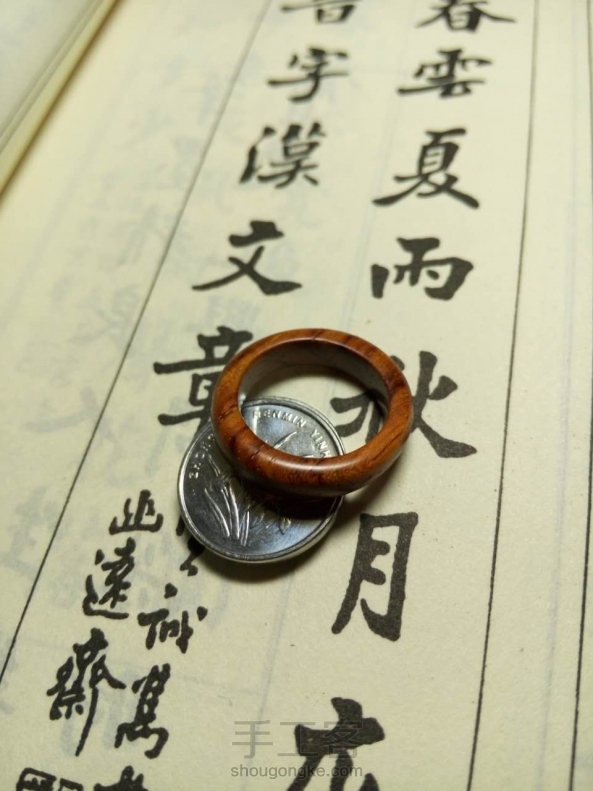 春雲夏雨秋月
字漢文章
遠齋
RENMIN YIN
手工客
shougongke.com